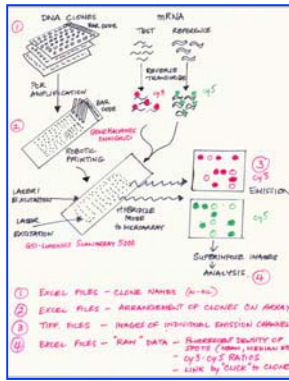 ①
DNA CLONES
BAR CODE
mRNA
TEST
REFERENCE
PCR
AMPLIFICATION
REVERSE
TRANSCRIBE
cy3
cy5
BAR
CODE
②
ROBOTIC
PRINTING
LASER 1
EXCITATION
LASER
EXCITATION
HYBRIDIZE
PROBE
TO MICROARRAY
③
cy3
EMISSION
cy5
SUPERIMPOSE IMAGES
ANALYSIS
④
① EXCEL FILES - CLONE NAMES
② EXCEL FILES - ARRANGEMENT OF CLONES ON ARRAY
③ TIFF FILES - IMAGES OF INDIVIDUAL EMISSION CHANNELS
④ EXCEL FILES "RAW" DATA - FLUORESCENT DENSITY OF
SPOTS (MEAN, MEDIAN
- cy3:cy5 RATIOS
- LINK BY "CLICK" TO CLONE